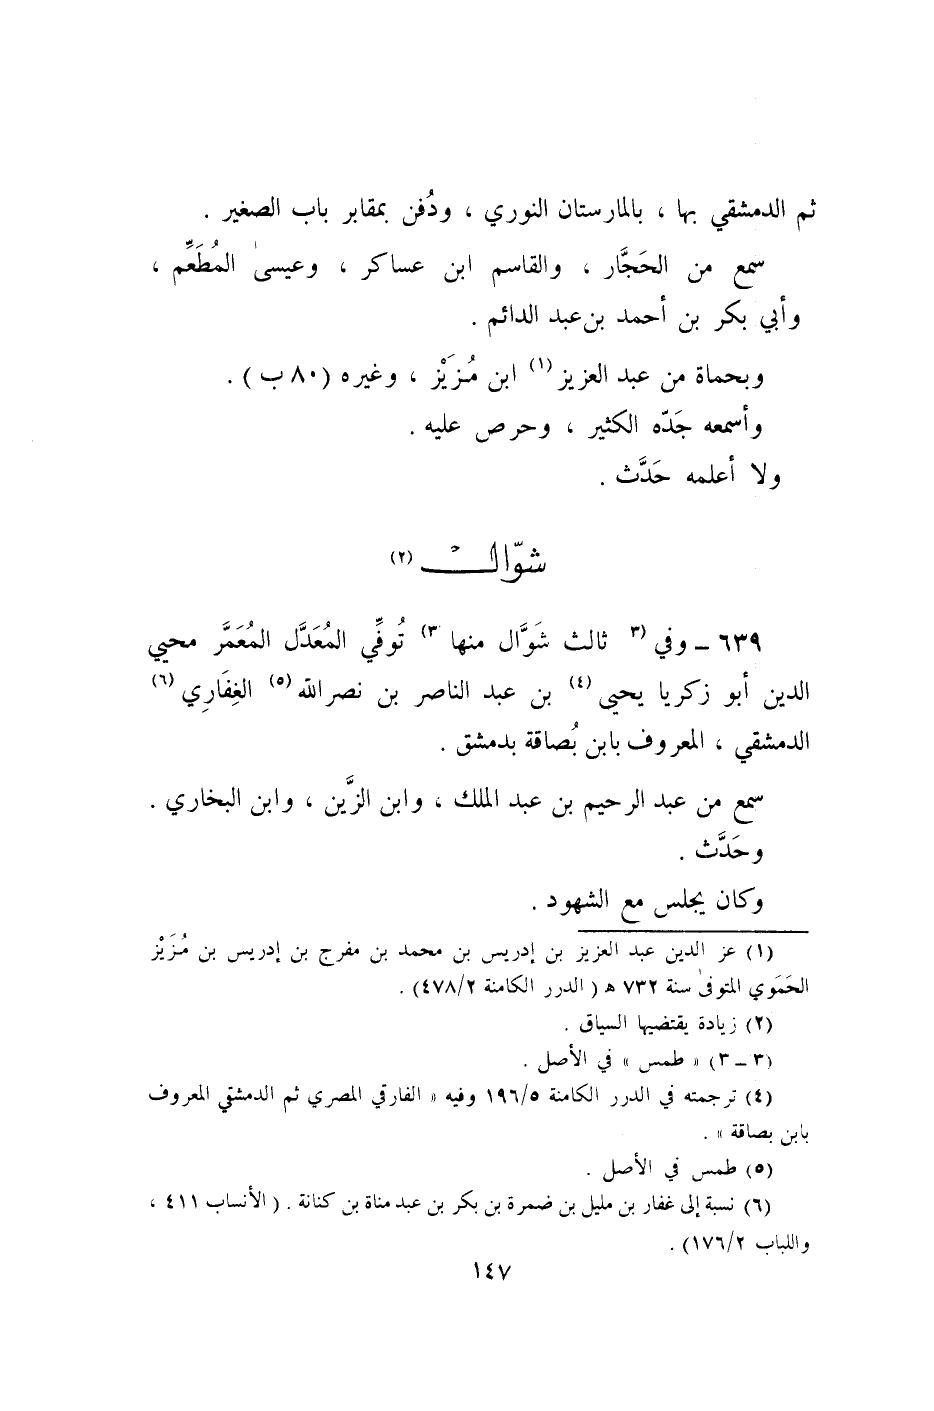 ثم الدمشقي بها ، بالمارستان النوري ، ودُفن بمقابر باب الصغير .
سمع من الحَجَّار ، والقاسم ابن عساكر ، وعيسىٰ المُطَعِّم ،
وأبي بكر بن أحمد بن عبد الدائم .
وبحماة من عبد العزيز (١) ابن مُزَيْز ، وغيره (٨٠ ب) .
وأسمعه جَدّه الكثير ، وحرص عليه .
ولا أعلمه حَدَّث .
شوّال (٢)
٦٣٩ ــ وفي (٣ ثالث شَوَّال منها ٣) تُوفِّي المُعَدَّل المُعَمَّر محيي
الدين أبو زكريا يحيى (٤) بن عبد الناصر بن نصرالله (٥) الغِفَارِي (٦)
الدمشقي ، المعروف بابن بُصاقة بدمشق .
سمع من عبد الرحيم بن عبد الملك ، وابن الزَّين ، وابن البخاري .
وحَدَّث .
وكان يجلس مع الشهود .
(١) عز الدين عبد العزيز بن إدريس بن محمد بن مفرج بن إدريس بن مُزَيْز
الحَمَوي المتوفىٰ سنة ٧٣٢ ه ( الدرر الكامنة ٤٧٨/٢) .
(٢) زيادة يقتضيها السياق .
(٣ ــ ٣) « طمس » في الأصل .
(٤) ترجمته في الدرر الكامنة ١٩٦/٥ وفيه « الفارقي المصري ثم الدمشقي المعروف
بابن بصاقة » .
(٥) طمس في الأصل .
(٦) نسبة إلى غفار بن مليل بن ضمرة بن بكر بن عبد مناة بن كنانة . ( الأنساب ٤١١ ،
واللباب ١٧٦/٢) .
١٤٧